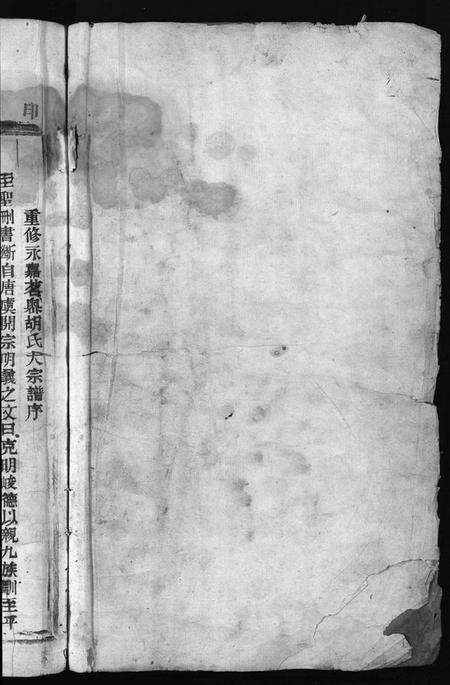 重修永嘉茗嶴胡氏大宗譜序
至聖刪書斷自唐虞開宗明義之文曰克明峻德以親九族訓至平
印